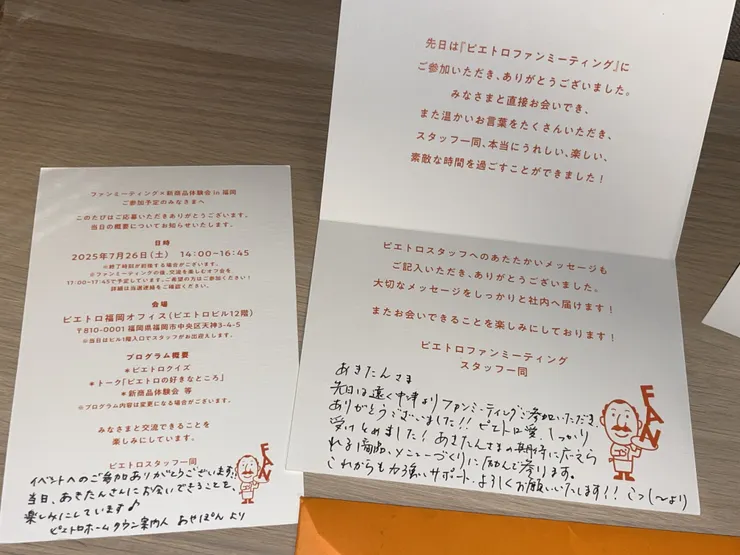 ファンミーティング×新商品体験会 in 福岡
ご参加予定のみなさまへ
このたびはご応募いただきありがとうございます。
当日の概要についてお知らせいたします。
日時
2025年7月26日(土) 14:00~16:45
※終了時刻が前後する場合がございます。
※ファンミーティングの後、交流を楽しむオフ会を
17:00~17:45で予定しています。ご希望の方はご参加ください!
詳細は当選連絡をご確認ください。
会場
ピエトロ福岡オフィス(ピエトロビル12階)
〒810-0001 福岡県福岡市中央区天神3-4-5
※当日はビル1階入口でスタッフがお出迎えします。
プログラム概要
*ピエトロクイズ
*トーク「ピエトロの好きなところ」
*新商品体験会 等
※プログラム内容は変更になる場合がございます。
みなさまと交流できることを
楽しみにしています。
ピエトロスタッフ一同
FAN
イベントへのご参加ありがとうございます!!
当日、あきたんさんにお会いできることを、
楽しみにしています♪
ピエトロホームタウン案内人 おやぽん より
先日は『ピエトロファンミーティング』に
ご参加いただき、ありがとうございました。
みなさまと直接お会いでき、
また温かいお言葉をたくさんいただき、
スタッフ一同、本当にうれしい、楽しい、
素敵な時間を過ごすことができました!
ピエトロスタッフへのあたたかいメッセージも
ご記入いただき、ありがとうございました。
大切なメッセージをしっかりと社内へ届けます!
またお会いできることを楽しみにしております!
ピエトロファンミーティング
スタッフ一同
FAN
あきたんさま
先日は遠く中津よりファンミーティングに参加いただき、
ありがとうございました!! ピエトロ愛、しっかり
受けとめました! あきたんさまの期待に応えら
れる商品、メニューづくりに励んで参ります。
これからも力強いサポート、よろしくお願いいたします!! こっしーより